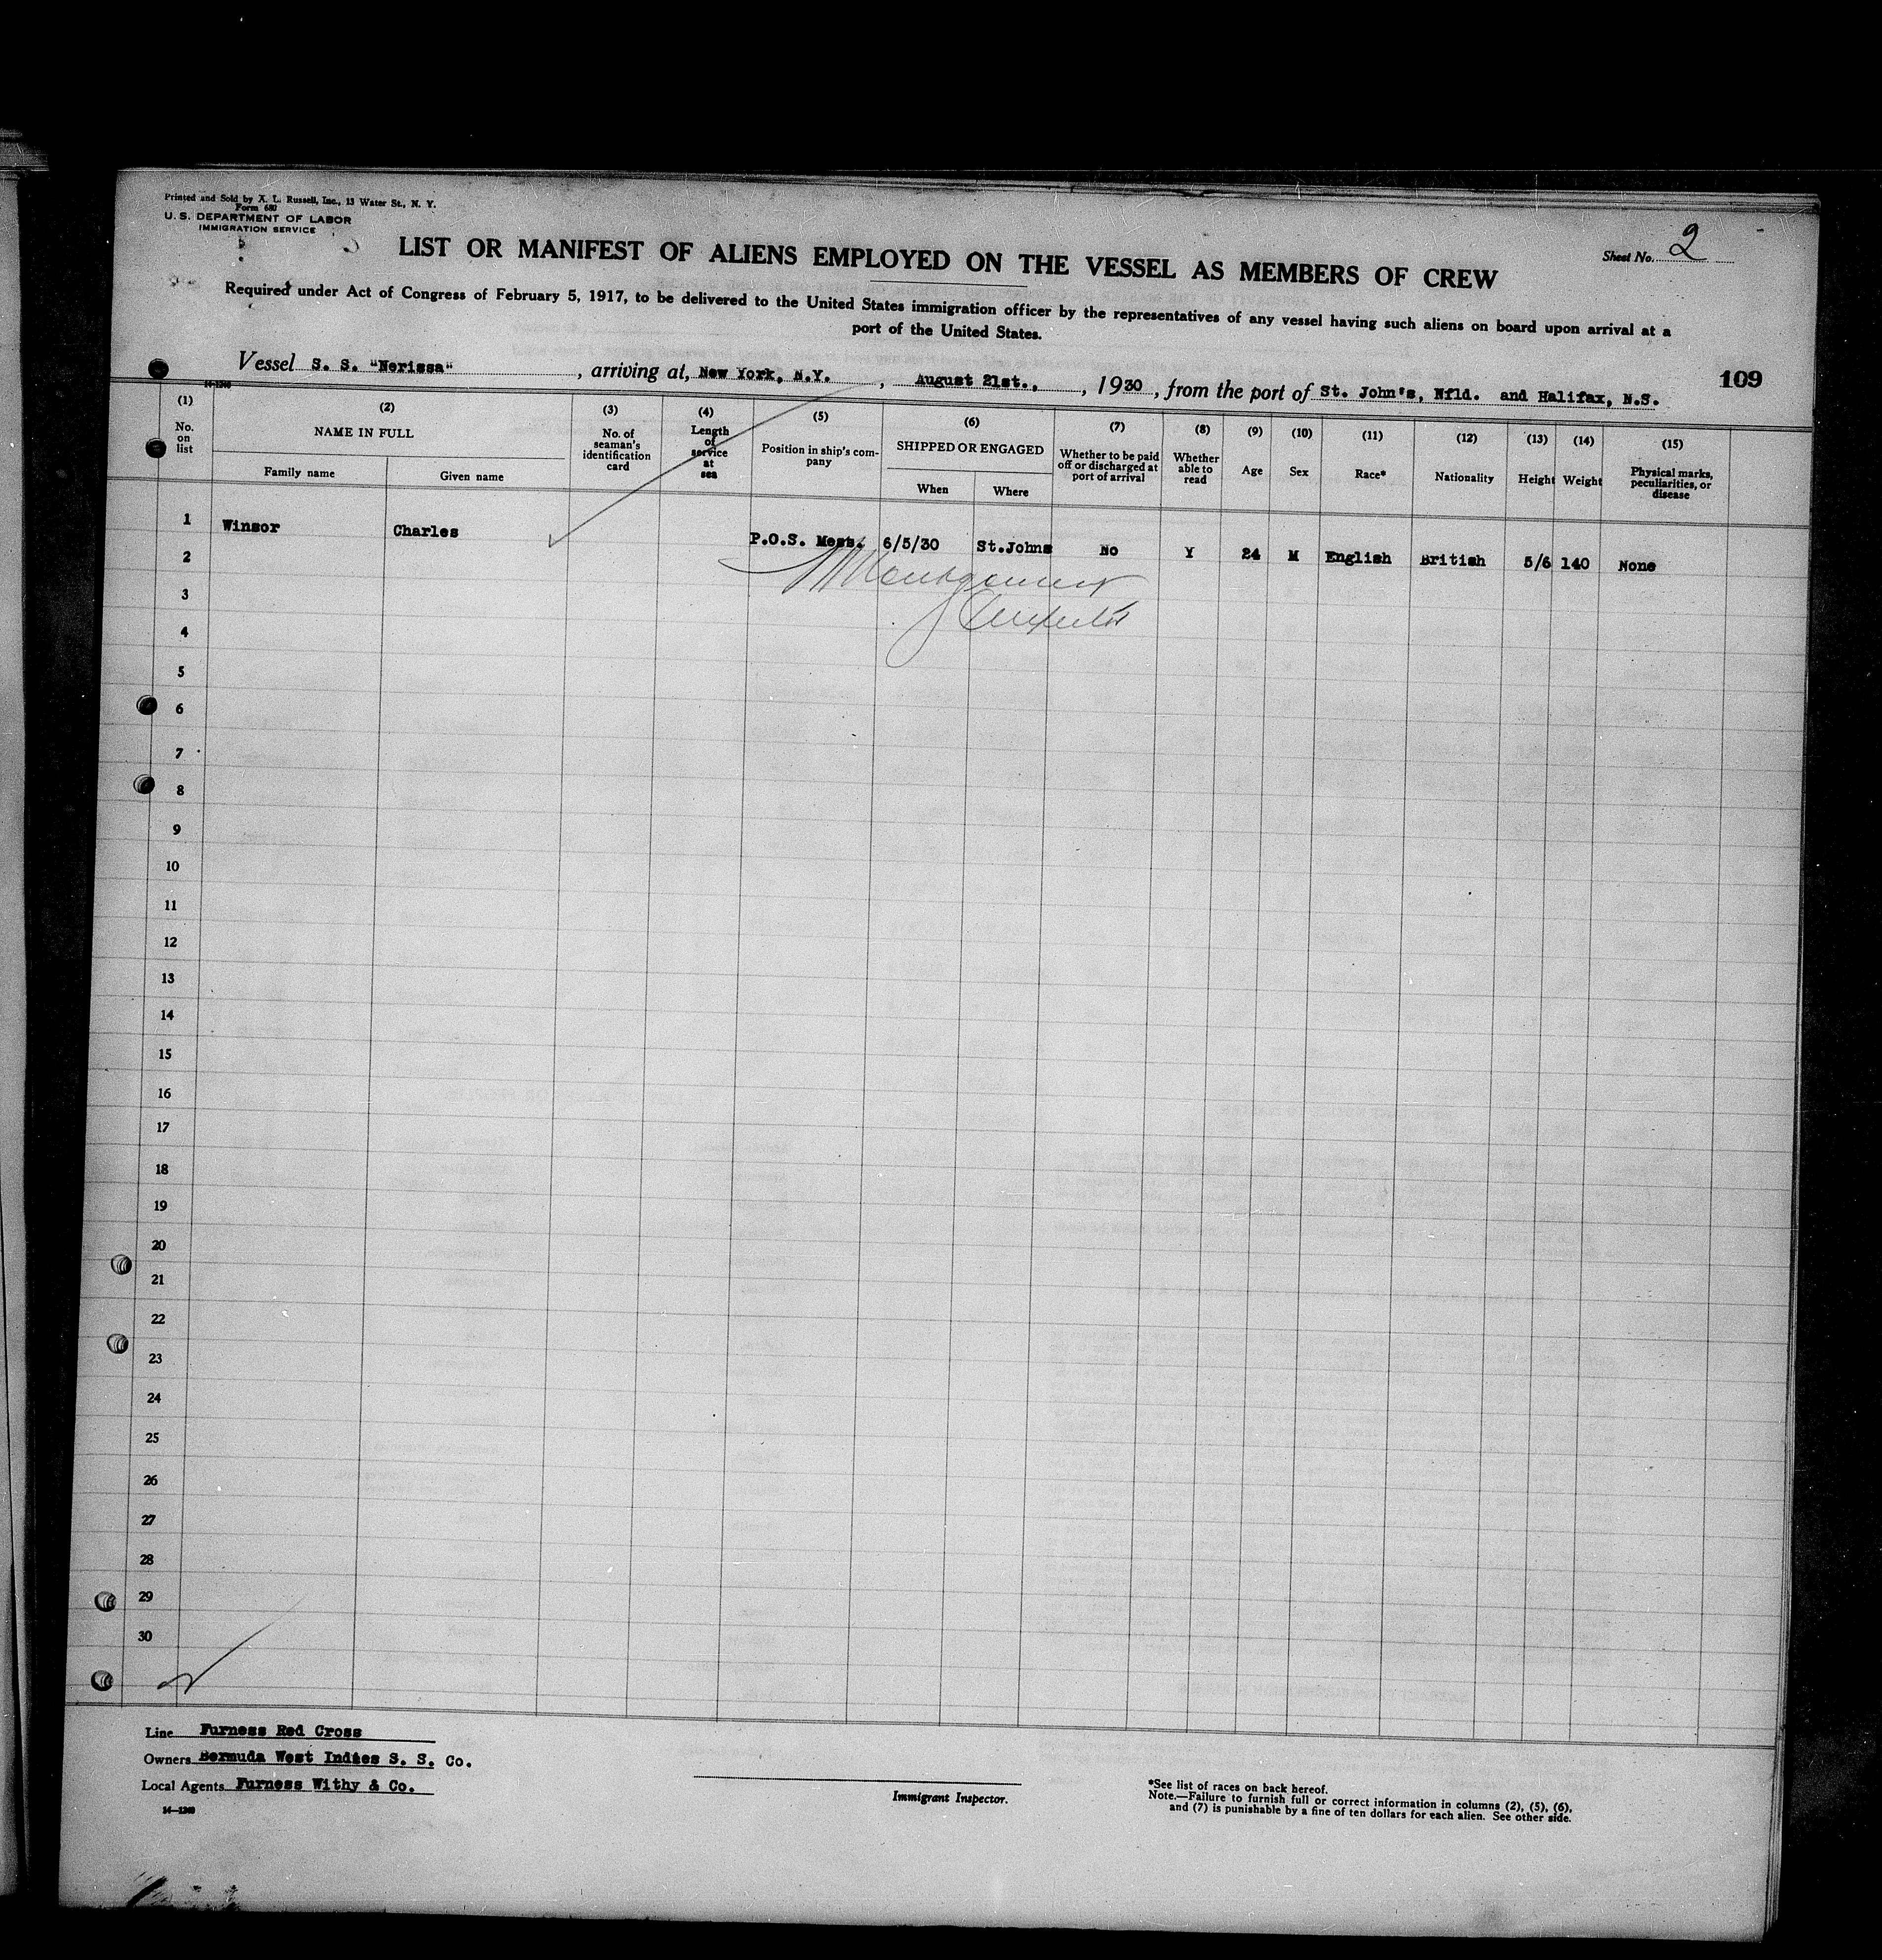 Printed and Sold by X. L. Russell, Inc., 13 Water St., N. Y.
Form 680
U. S. DEPARTMENT OF LABOR
IMMIGRATION SERVICE
Sheet No. 2
LIST OR MANIFEST OF ALIENS EMPLOYED ON THE VESSEL AS MEMBERS OF CREW
Required under Act of Congress of February 5, 1917, to be delivered to the United States immigration officer by the representatives of any vessel having such aliens on board upon arrival at a
port of the United States.
109
Vessel S. S. "Nerissa", arriving at, New York, N.Y., August 21st., , 1930, from the port of St. John's, Nfld. and Halifax, N.S.
14-1240
(1) (2) (3) (4) (5) (6) (7) (8) (9) (10) (11) (12) (13) (14) (15)
No. on list
NAME IN FULL
Family name
Given name
No. of seaman's identification card
Length of service at sea
Position in ship's company
SHIPPED OR ENGAGED
When
Where
Whether to be paid off or discharged at port of arrival
Whether able to read
Age
Sex
Race*
Nationality
Height
Weight
Physical marks, peculiarities, or disease
1 Winsor Charles P.O.S. Mess. 6/5/30 St.Johns No Y 24 M English British 5/6 140 None
2
Montgomery
3
4
5
6
7
8
9
10
11
12
13
14
15
16
17
18
19
20
21
22
23
24
25
26
27
28
29
30
Line Furness Red Cross
Owners Bermuda West Indies S. S. Co.
Local Agents Furness Withy & Co.
14-1240
Immigrant Inspector.
*See list of races on back hereof.
Note.—Failure to furnish full or correct information in columns (2), (5), (6),
and (7) is punishable by a fine of ten dollars for each alien. See other side.